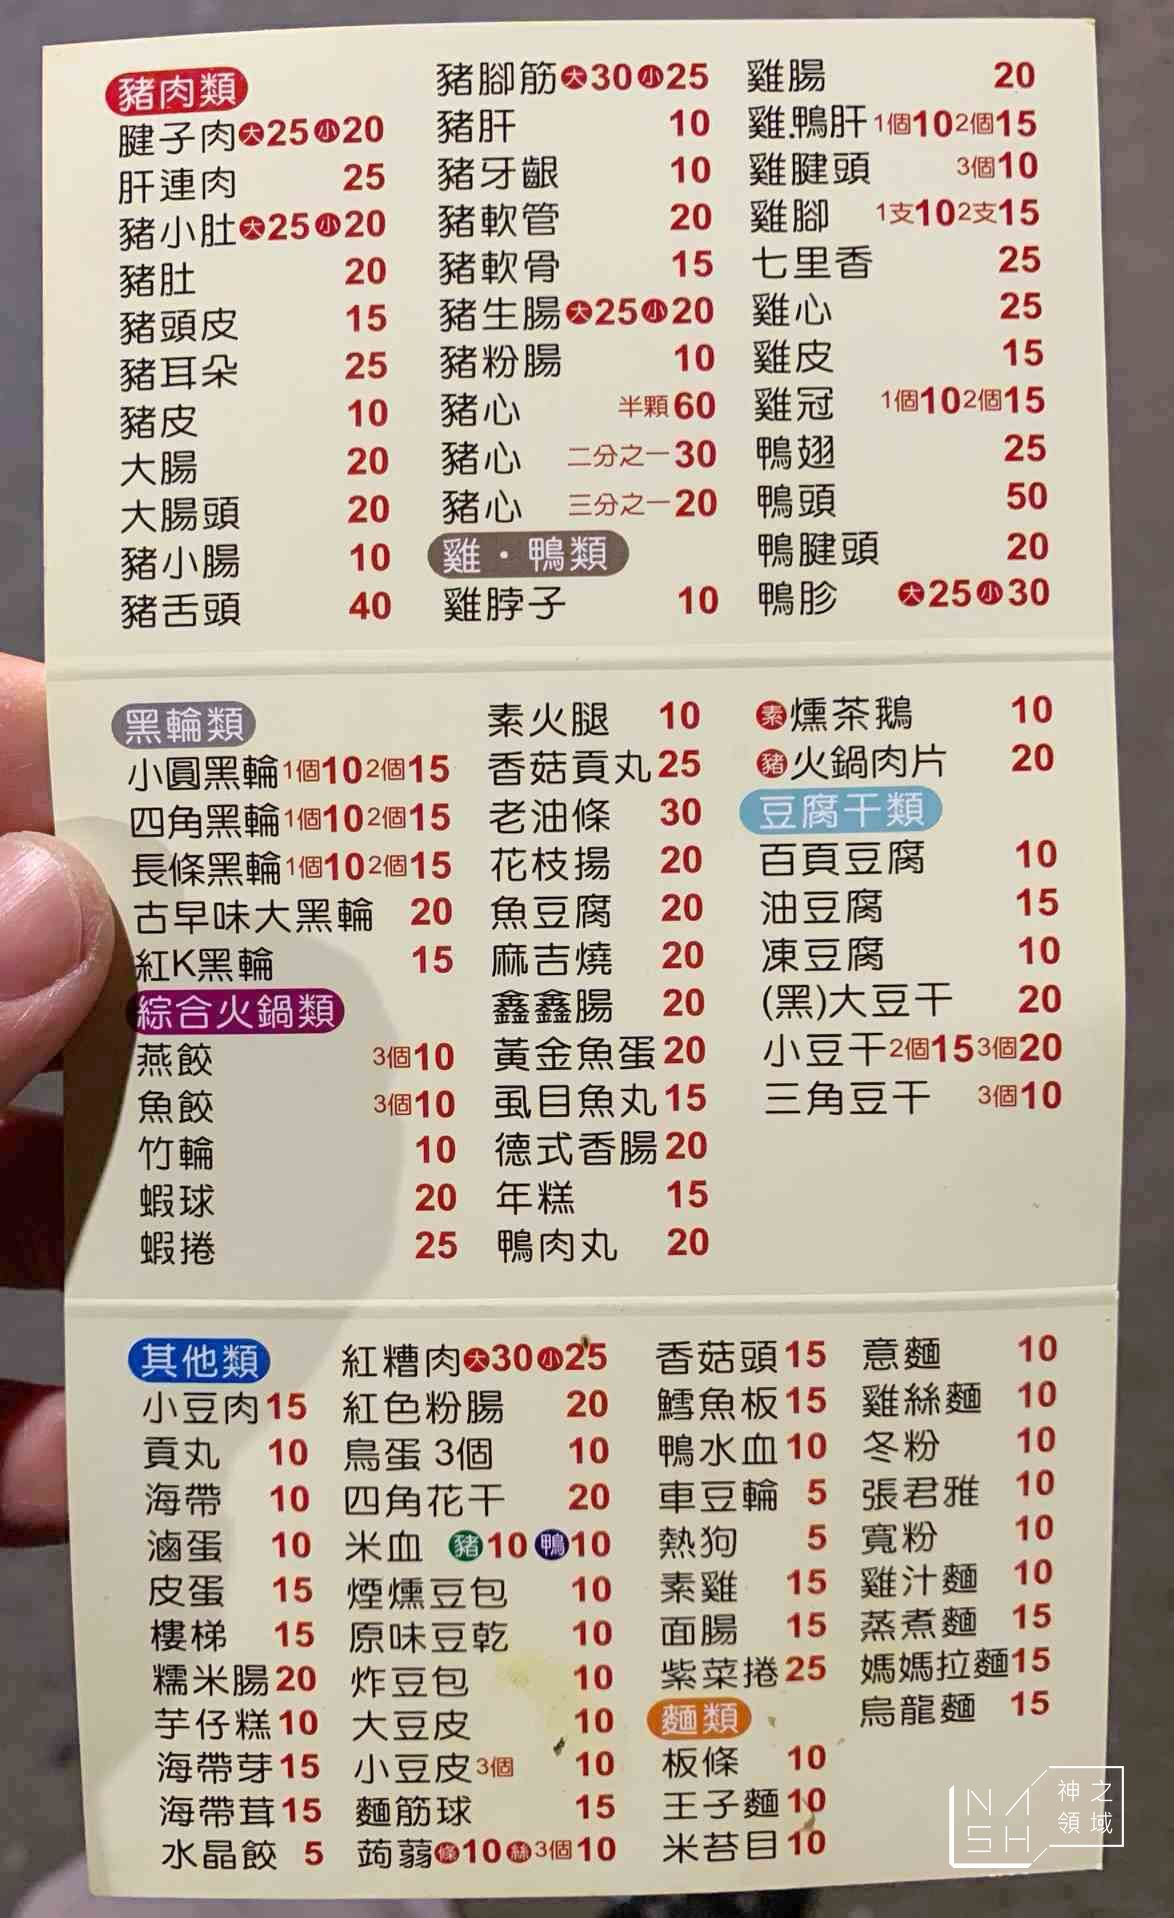 豬肉類
腱子肉大25小20
肝連肉 25
豬小肚大25小20
豬肚 20
豬頭皮 15
豬耳朵 25
豬皮 10
大腸 20
大腸頭 20
豬小腸 10
豬舌頭 40
豬腳筋大30小25
豬肝 10
豬牙齦 10
豬軟管 20
豬軟骨 15
豬生腸大25小20
豬粉腸 10
豬心 半顆60
豬心 二分之一30
豬心 三分之一20
雞·鴨類
雞脖子 10
雞腸 20
雞.鴨肝1個10 2個15
雞腱頭 3個10
雞腳 1支10 2支15
七里香 25
雞心 25
雞皮 15
雞冠 1個10 2個15
鴨翅 25
鴨頭 50
鴨腱頭 20
鴨胗 大25小30
黑輪類
小圓黑輪1個10 2個15
四角黑輪1個10 2個15
長條黑輪1個10 2個15
古早味大黑輪 20
紅K黑輪 15
綜合火鍋類
燕餃 3個10
魚餃 3個10
竹輪 10
蝦球 20
蝦捲 25
素火腿 10
香菇貢丸25
老油條 30
花枝揚 20
魚豆腐 20
麻吉燒 20
鑫鑫腸 20
黃金魚蛋20
虱目魚丸15
德式香腸20
年糕 15
鴨肉丸 20
素燻茶鵝 10
豬火鍋肉片 20
豆腐干類
百頁豆腐 10
油豆腐 15
凍豆腐 10
(黑)大豆干 20
小豆干2個15 3個20
三角豆干 3個10
其他類
小豆肉15
貢丸 10
海帶 10
滷蛋 10
皮蛋 15
樓梯 15
糯米腸20
芋仔糕10
海帶芽15
海帶茸15
水晶餃 5
紅糟肉大30小25
紅色粉腸 20
鳥蛋 3個 10
四角花干 20
米血 豬10鴨10
煙燻豆包 10
原味豆乾 10
炸豆包 10
大豆皮 10
小豆皮3個 10
麵筋球 15
蒟蒻條10絲3個10
香菇頭15
鱈魚板15
鴨水血10
車豆輪 5
熱狗 5
素雞 15
面腸 15
紫菜捲25
麵類
板條 10
王子麵10
米苔目10
意麵 10
雞絲麵 10
冬粉 10
張君雅 10
寬粉 10
雞汁麵 10
蒸煮麵 15
媽媽拉麵15
烏龍麵 15
NASH
神之領域